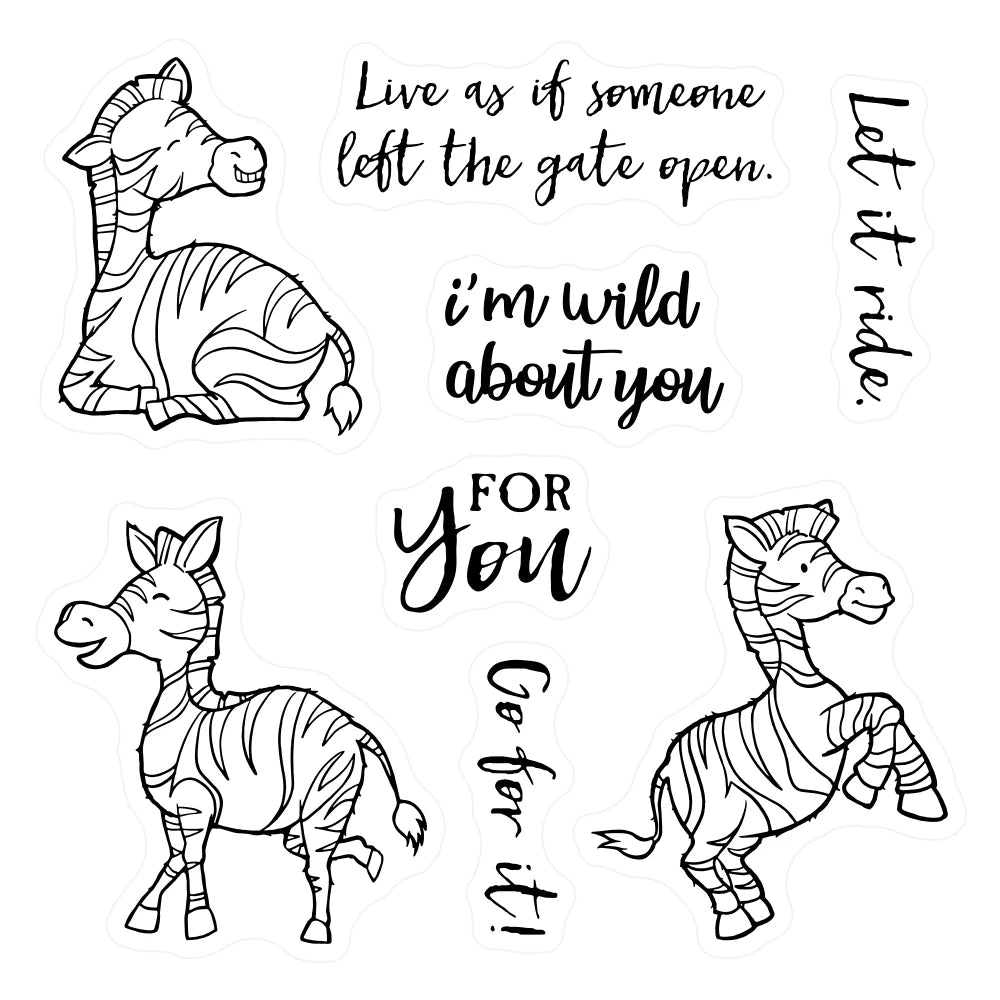 Live as if someone
left the gate open.
Let it ride.
i'm wild
about you
FOR
you
Go for it!